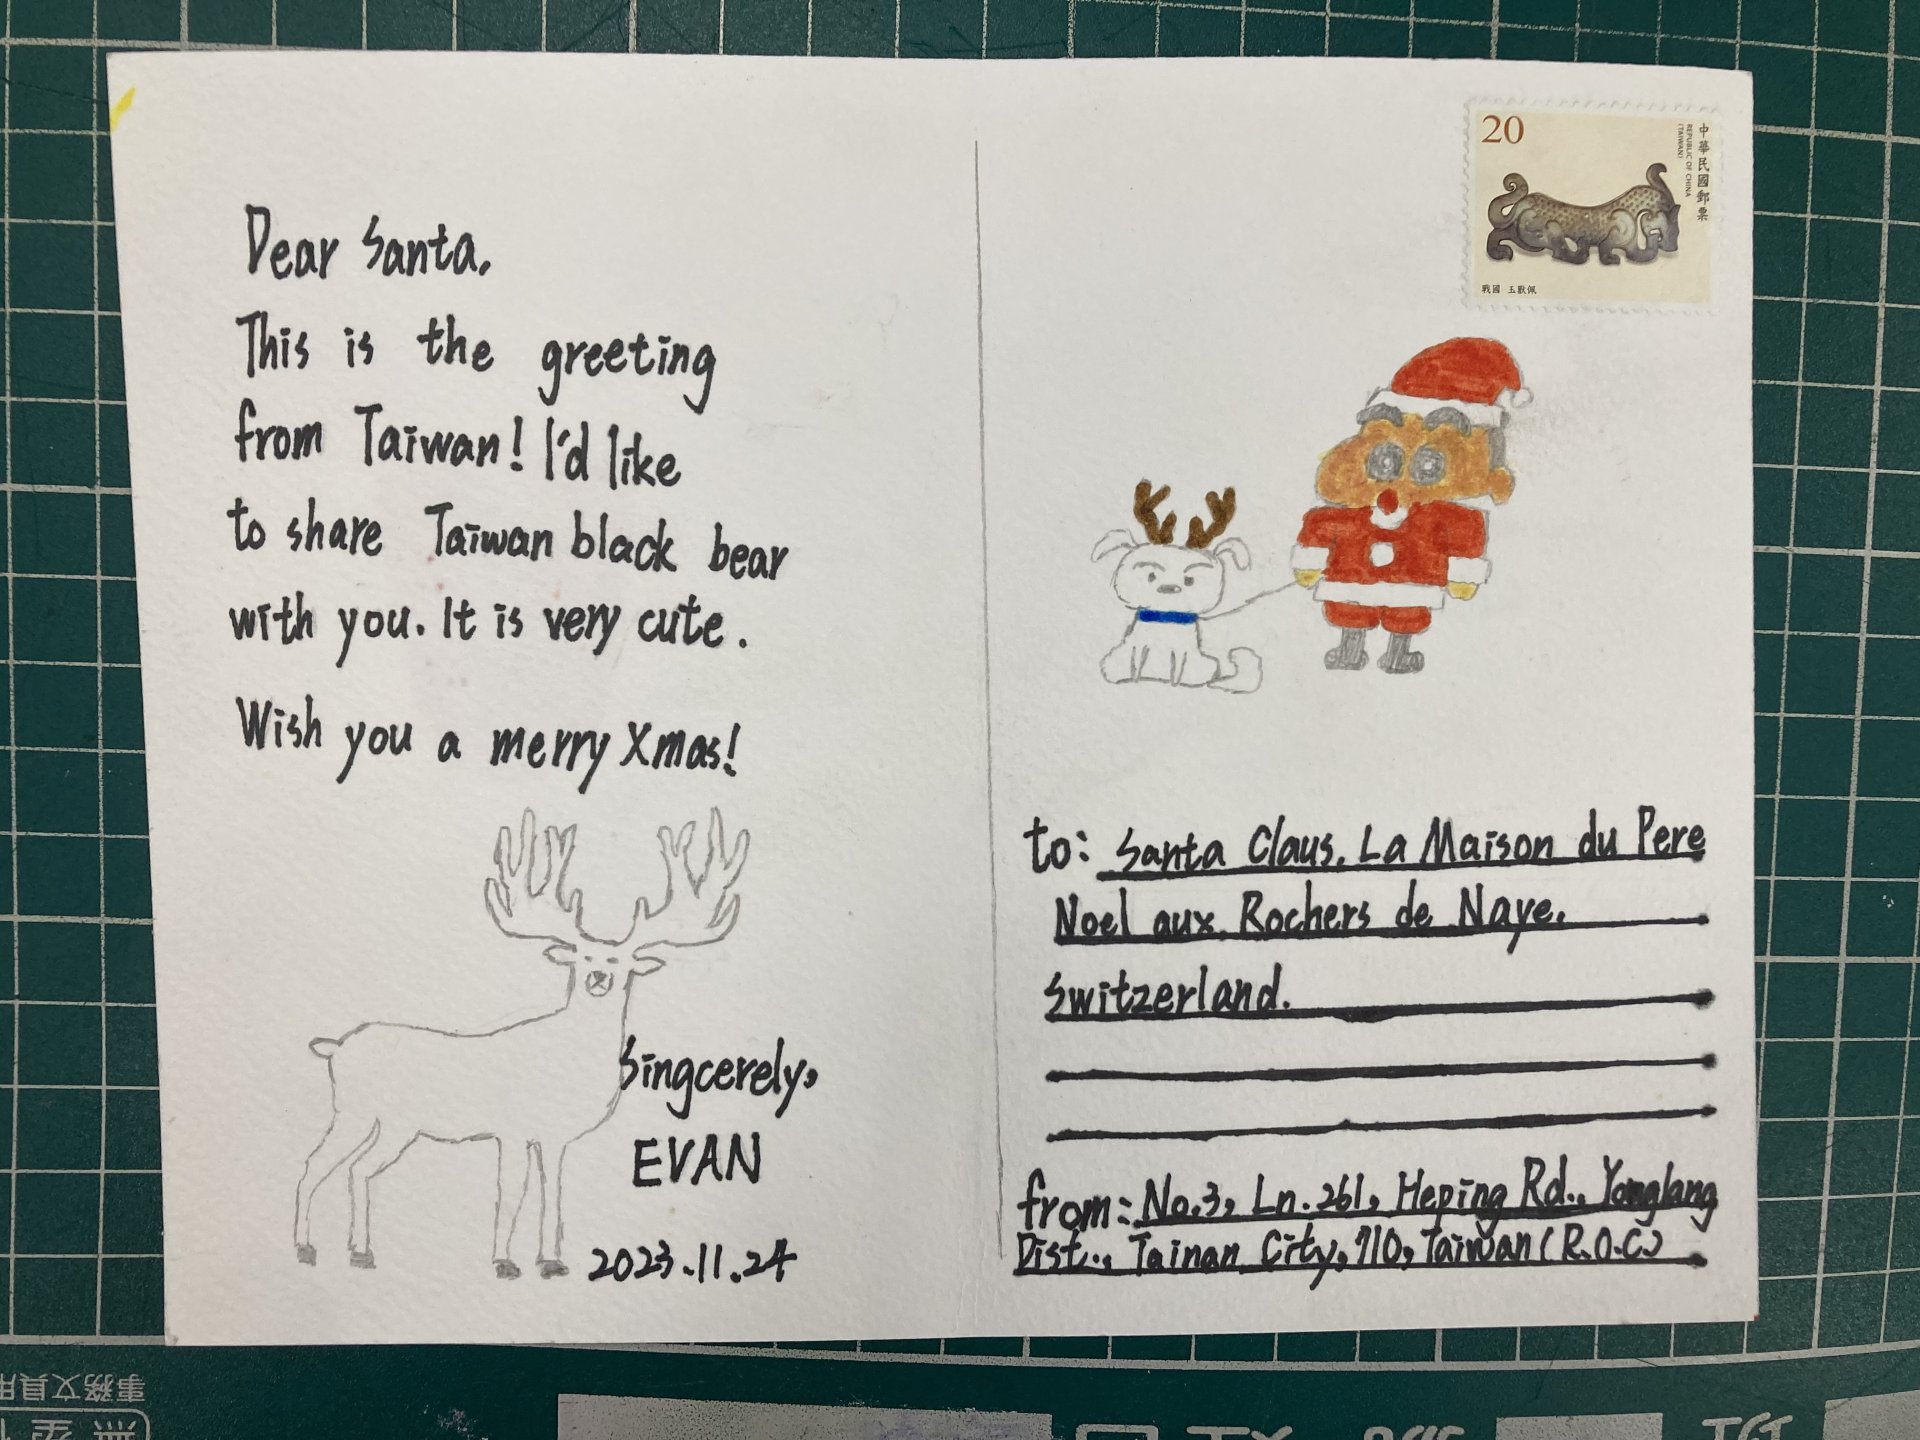 Dear Santa,
This is the greeting
from Taiwan! I'd like
to share Taiwan black bear
with you. It is very cute.
Wish you a merry Xmas!
Singcerely,
EVAN
2023.11.24
20
中華民國郵票
REPUBLIC OF CHINA
(TAIWAN)
戰國 玉獸佩
to: Santa Claus. La Maison du Pere
Noel aux Rochers de Naye.
Switzerland.
from: No.3, Ln.261, Heping Rd., Yongkang
Dist., Tainan City, 710, Taiwan (R.O.C)
事務文具用
無塗